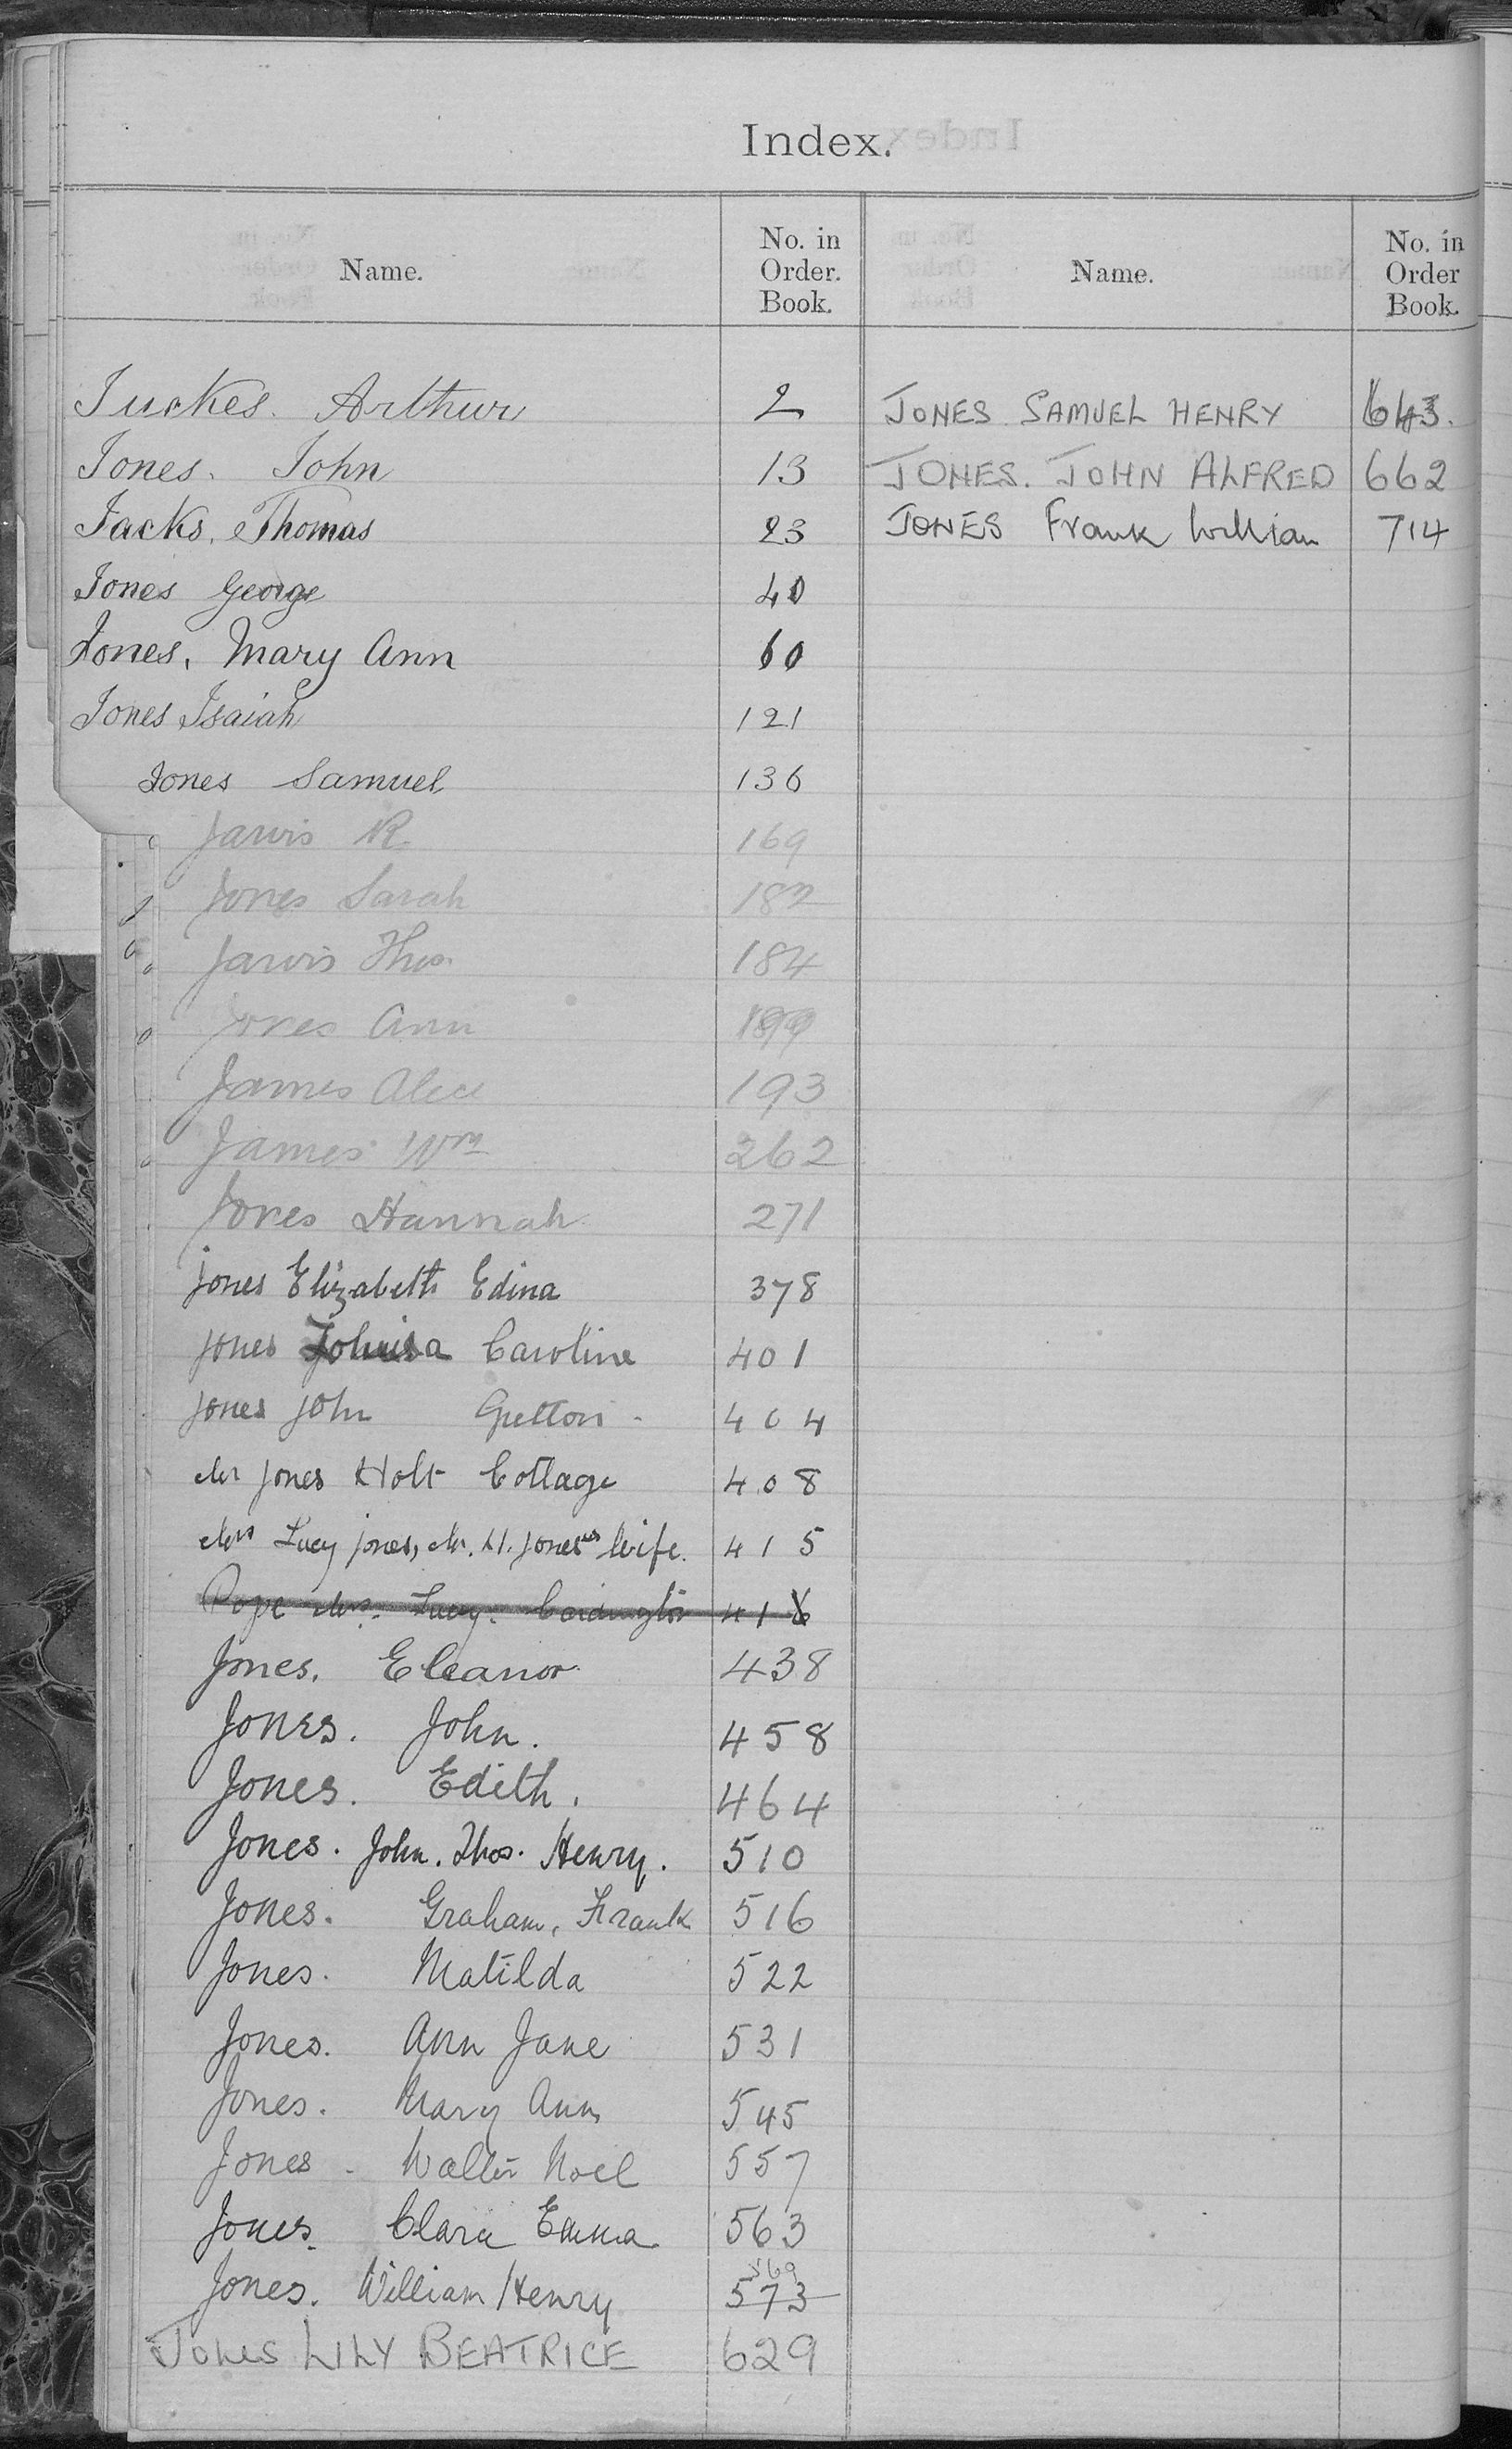 Index.
Name.
No. in Order. Book.
Name.
No. in Order Book.
Juckes. Arthur 2
Jones. John 13
Jacks, Thomas 23
Jones George 40
Jones, Mary Ann 60
Jones Isaiah 121
Jones Samuel 136
Jarvis R. 169
Jones Sarah 182
Jarvis Thos. 184
Jones Ann
James Alice 193
James Wm 262
Jones Hannah 271
Jones Elizabeth Edina 378
Jones Caroline 401
Jones John Gretton 404
Mr Jones Holt Cottage 408
Mrs Lucy Jones, Mr. H. Jones's Wife. 415
Pope Mrs. Lucy. Cardington 416
Jones. Eleanor 438
Jones. John. 458
Jones. Edith. 464
Jones. John. Thos. Henry. 510
Jones. Graham, Frank 516
Jones. Matilda 522
Jones. Ann Jane 531
Jones. Mary Ann 545
Jones - Walter Noel 557
Jones. Clara Emma 563
569
Jones. William Henry 573
Jones LILY BEATRICE 629
JONES SAMUEL HENRY 643.
JONES. JOHN ALFRED 662
JONES Frank William 714